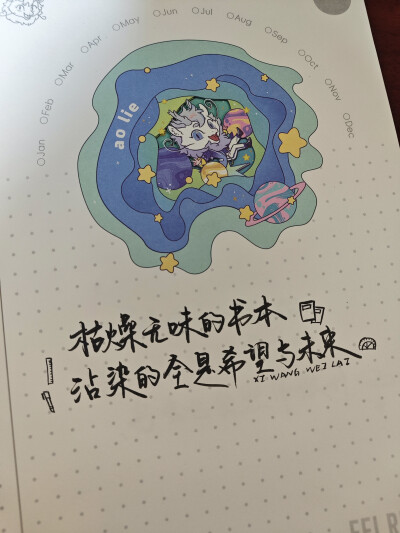 Jan
Feb
Mar
Apr
May
Jun
Jul
Aug
Sep
Oct
Nov
Dec
ao lie
枯燥无味的书本
沾染的全是希望与未来
XI WANG WEI LAI